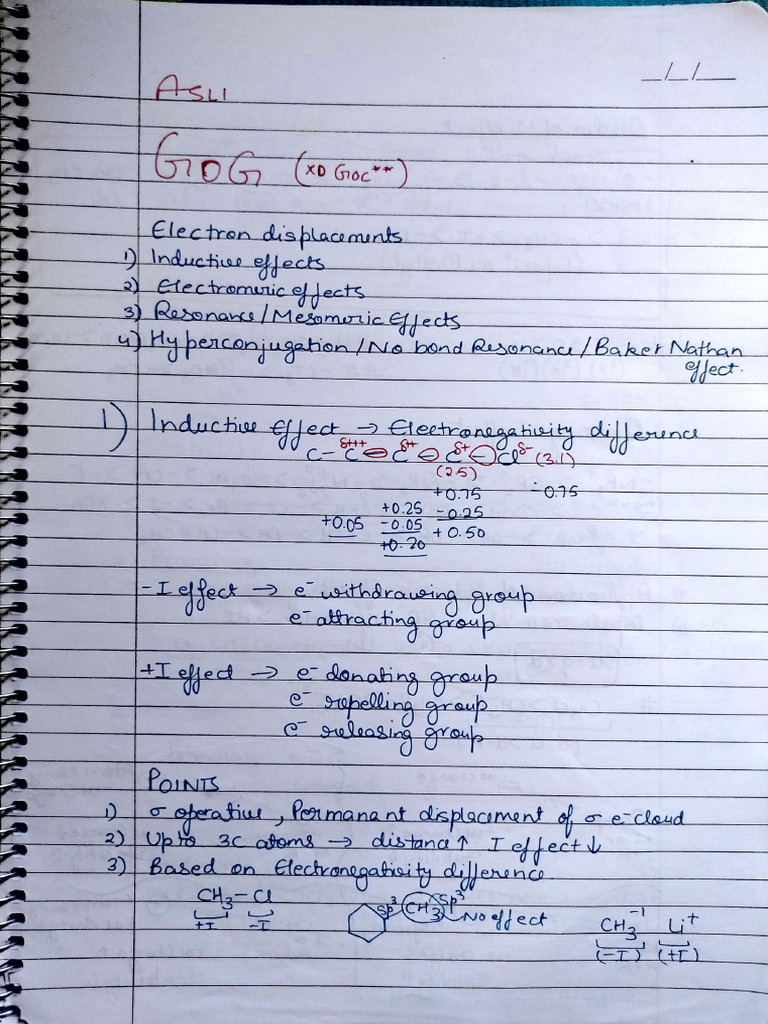 _/_/__
ASLI
GOG (XD GOC**)
Electron displacements
1) Inductive effects
2) Electromeric effects
3) Resonance/Mesomeric Effects
4) Hyperconjugation/No bond Resonance/Baker Nathan
effect.
1) Inductive Effect → Electronegativity difference
C-C δ+++ C δ++ C δ+ Cl δ- (3.1)
(2.5)
+0.75 -0.75
+0.25 -0.25
+0.05 -0.05 +0.50
+0.20
-I effect → e⁻ withdrawing group
e⁻ attracting group
+I effect → e⁻ donating group
e⁻ repelling group
e⁻ releasing group
POINTS
1) σ operative, Permanant displacement of σ e⁻cloud
2) Upto 3C atoms → distance↑ I effect↓
3) Based on Electronegativity difference.
CH₃-Cl Sp³ CH₃ Sp³ No effect CH₃⁻¹ Li⁺
+I -I (-I) (+I)